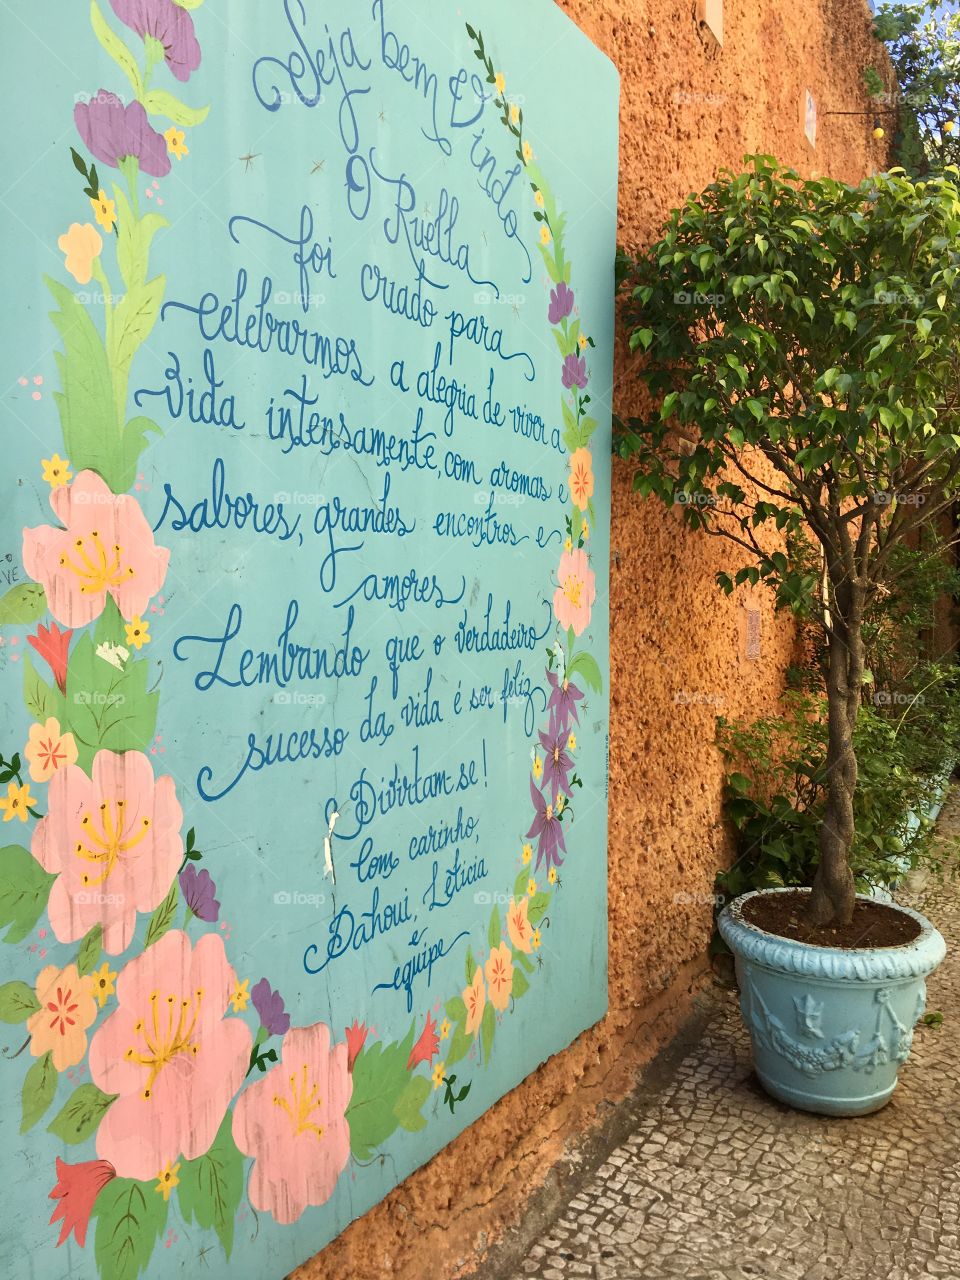 Seja bem Vindo
O Ruella
foi criado para
celebrarmos a alegria de viver a
vida intensamente, com aromas e
sabores, grandes encontros e
amores
Lembrando que o verdadeiro
sucesso da vida é ser feliz
Divirtam.se!
Com carinho,
Dahoui, Letícia
e
equipe